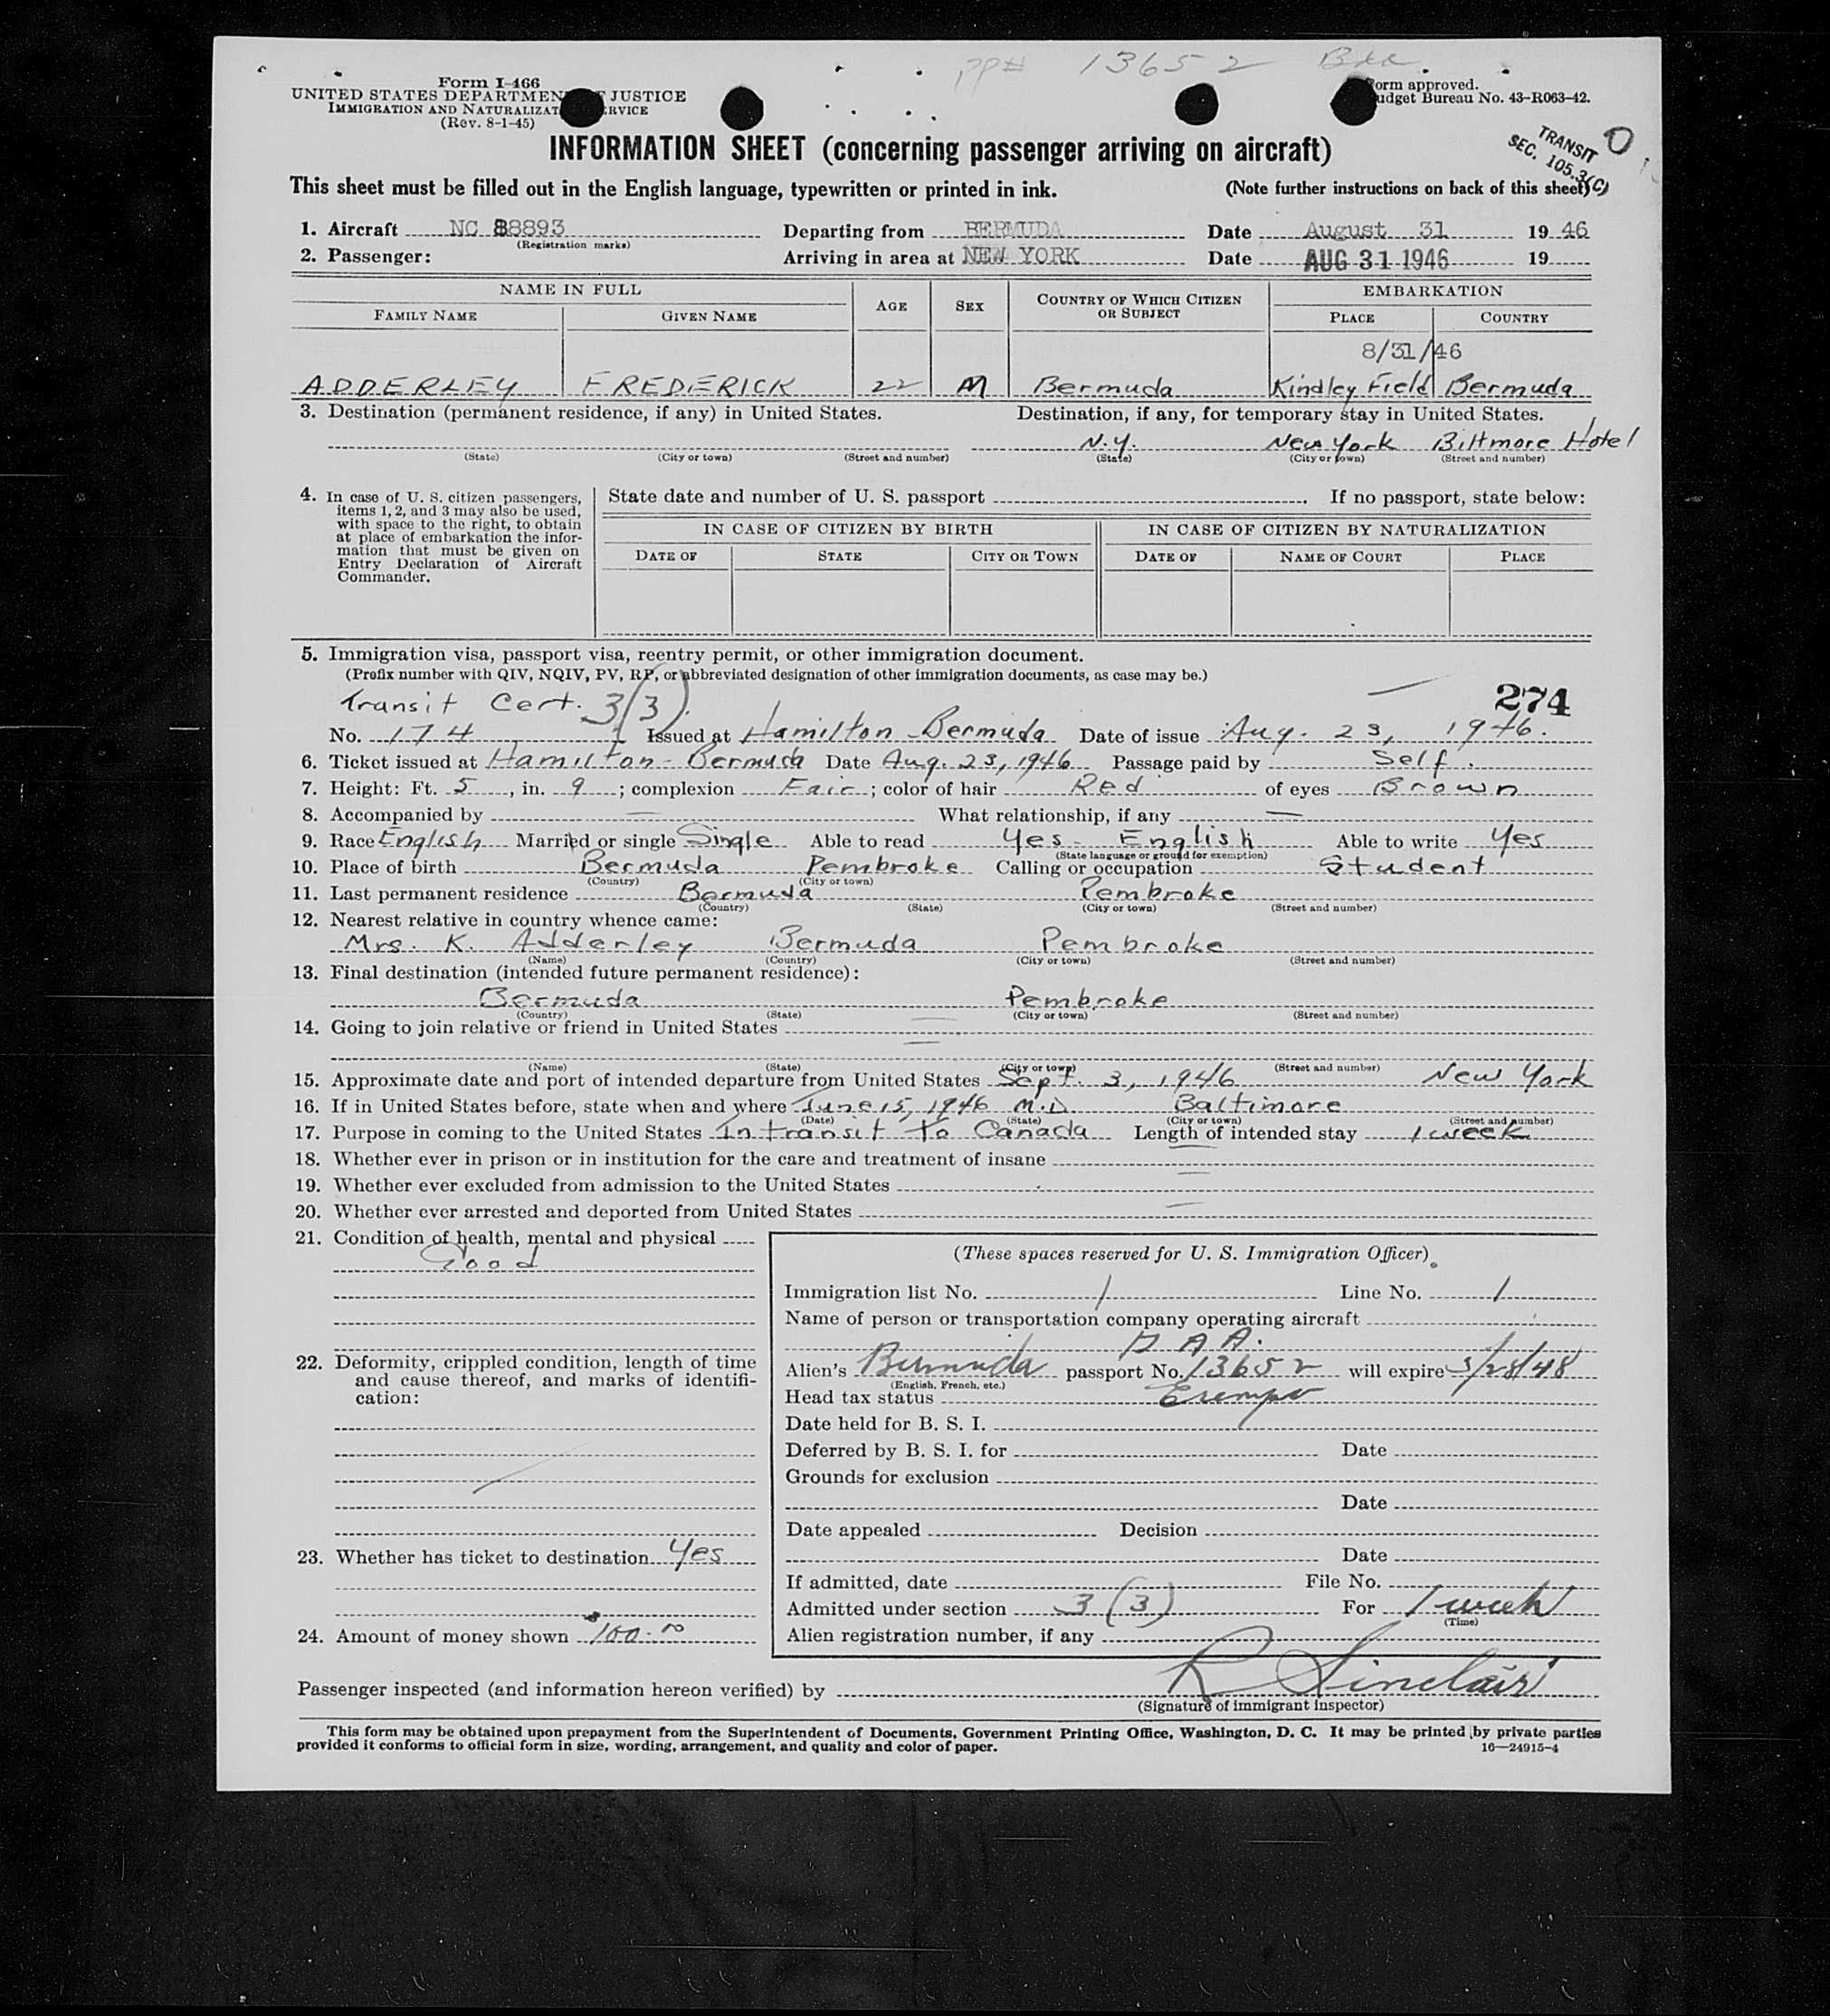 PP# 13652 Bda.
Form I-466
UNITED STATES DEPARTMENT JUSTICE
IMMIGRATION AND NATURALIZAT ERVICE
(Rev. 8-1-45)
orm approved.
udget Bureau No. 43-R063-42.
INFORMATION SHEET (concerning passenger arriving on aircraft)
TRANSIT
SEC. 105.3(C)
This sheet must be filled out in the English language, typewritten or printed in ink. (Note further instructions on back of this sheet)
1. Aircraft NC 88893 Departing from BERMUDA Date August 31 19 46
(Registration marks)
2. Passenger: Arriving in area at NEW YORK Date AUG 31 1946 19
NAME IN FULL AGE SEX COUNTRY OF WHICH CITIZEN OR SUBJECT EMBARKATION
FAMILY NAME GIVEN NAME PLACE COUNTRY
8/31/46
ADDERLEY FREDERICK 22 M Bermuda Kindley Field Bermuda
3. Destination (permanent residence, if any) in United States. Destination, if any, for temporary stay in United States.
N.Y. New York Biltmore Hotel
(State) (City or town) (Street and number) (State) (City or town) (Street and number)
4. In case of U. S. citizen passengers, items 1, 2, and 3 may also be used, with space to the right, to obtain at place of embarkation the information that must be given on Entry Declaration of Aircraft Commander.
State date and number of U. S. passport . If no passport, state below:
IN CASE OF CITIZEN BY BIRTH IN CASE OF CITIZEN BY NATURALIZATION
DATE OF STATE CITY OR TOWN DATE OF NAME OF COURT PLACE
5. Immigration visa, passport visa, reentry permit, or other immigration document.
(Prefix number with QIV, NQIV, PV, RP, or abbreviated designation of other immigration documents, as case may be.)
Transit Cert. 3(3) 274
No. 174 Issued at Hamilton - Bermuda Date of issue Aug. 23, 1946.
6. Ticket issued at Hamilton - Bermuda Date Aug. 23, 1946 Passage paid by Self.
7. Height: Ft. 5, in. 9; complexion Fair; color of hair Red of eyes Brown
8. Accompanied by — What relationship, if any —
9. Race English Married or single Single Able to read Yes - English Able to write Yes
(State language or ground for exemption)
10. Place of birth Bermuda Pembroke Calling or occupation Student
(Country) (City or town)
11. Last permanent residence Bermuda Pembroke
(Country) (State) (City or town) (Street and number)
12. Nearest relative in country whence came:
Mrs. K. Adderley Bermuda Pembroke
(Name) (Country) (City or town) (Street and number)
13. Final destination (intended future permanent residence):
Bermuda Pembroke
(Country) (State) (City or town) (Street and number)
14. Going to join relative or friend in United States —
(Name) (State) (City or town) (Street and number)
15. Approximate date and port of intended departure from United States Sept. 3, 1946 New York
16. If in United States before, state when and where June 15, 1946 M.D. Baltimore
(Date) (State) (City or town) (Street and number)
17. Purpose in coming to the United States In transit to Canada Length of intended stay 1 week
18. Whether ever in prison or in institution for the care and treatment of insane —
19. Whether ever excluded from admission to the United States —
20. Whether ever arrested and deported from United States —
21. Condition of health, mental and physical
Good
22. Deformity, crippled condition, length of time and cause thereof, and marks of identification:
23. Whether has ticket to destination Yes
24. Amount of money shown $100.00
(These spaces reserved for U. S. Immigration Officer)
Immigration list No. 1 Line No. 1
Name of person or transportation company operating aircraft
P A A.
Alien's Bermuda passport No. 13652 will expire 3/28/48
(English, French, etc.)
Head tax status Exempt
Date held for B. S. I.
Deferred by B. S. I. for Date
Grounds for exclusion
Date
Date appealed Decision
Date
If admitted, date File No.
Admitted under section 3 (3) For 1 week
(Time)
Alien registration number, if any
Passenger inspected (and information hereon verified) by R Sinclair
(Signature of immigrant inspector)
This form may be obtained upon prepayment from the Superintendent of Documents, Government Printing Office, Washington, D. C. It may be printed by private parties
provided it conforms to official form in size, wording, arrangement, and quality and color of paper. 16—24915-4